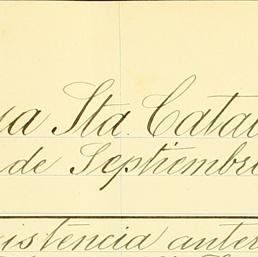 ua Sta. Catal
de Septiembre
istencia anter